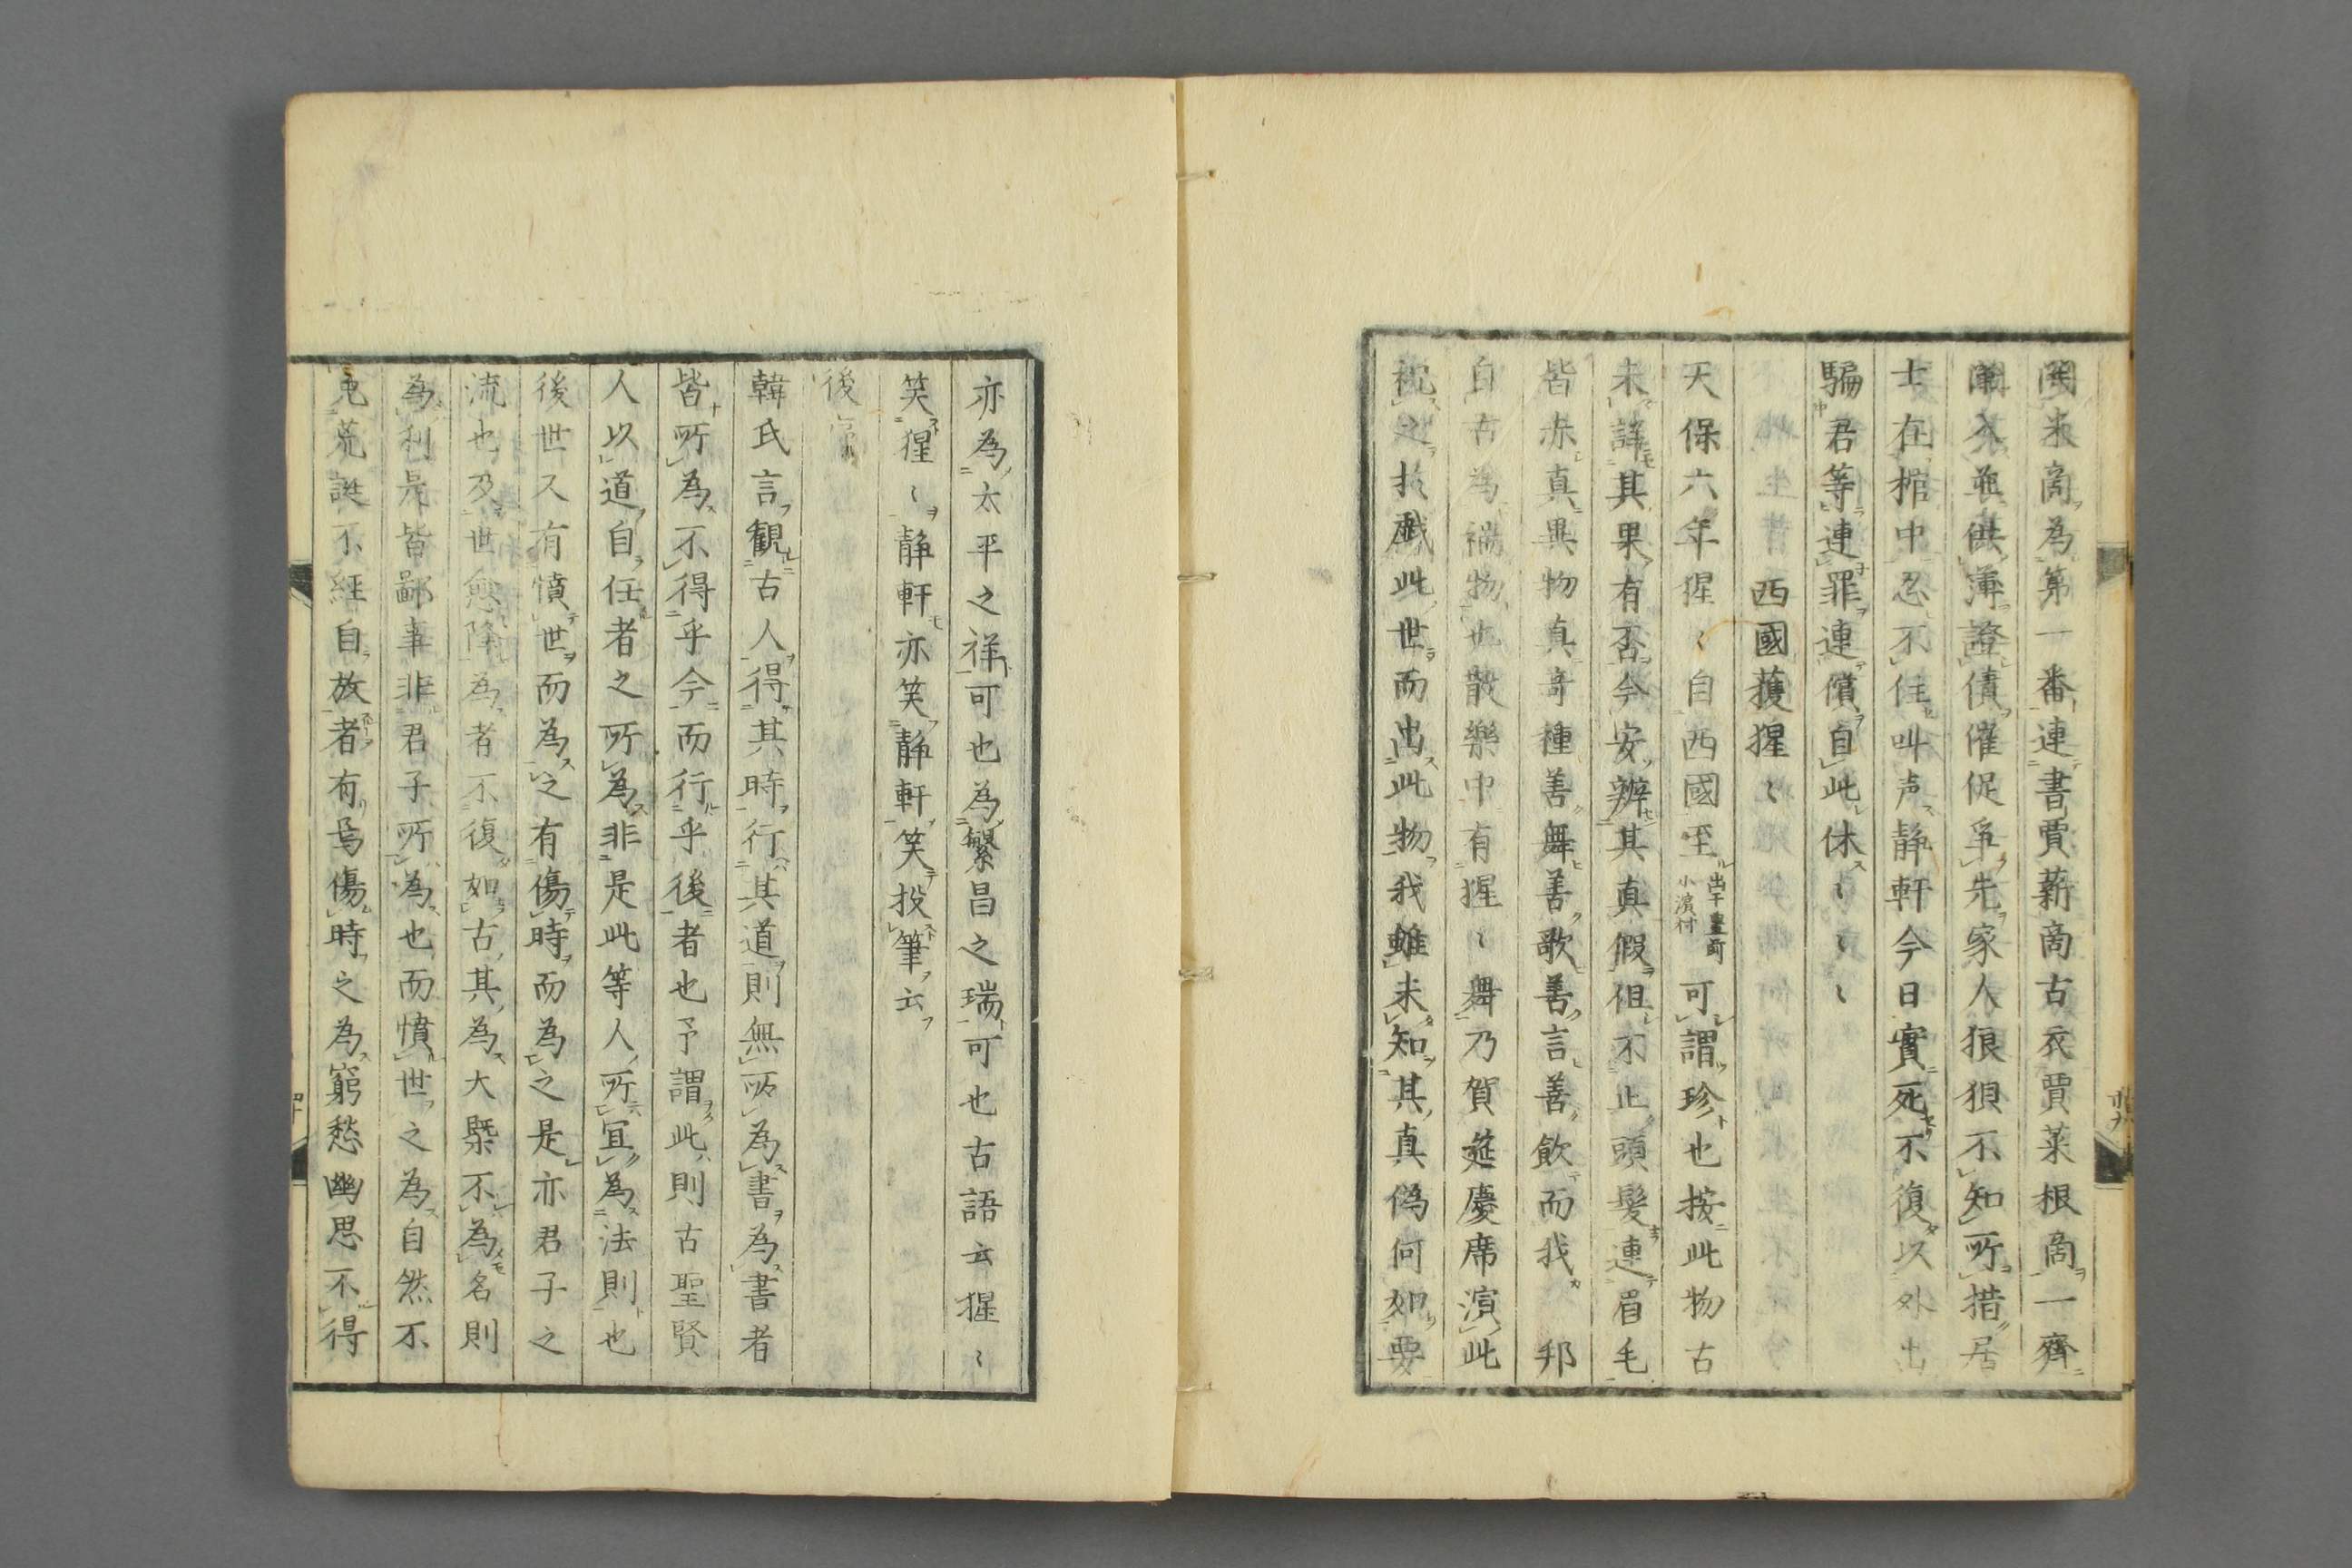 来商為第一番連書賈薪商古衣賈菜根商一齊
入並供簿證債催促爭先家人狼狽不知所措居
士在棺中忍不住叫声静軒今日實死不復以外出
騙君等連罪連償自此休〻〻〻
西國獲猩〻
天保六年猩〻自西國至出于豊前小濱村可謂珍也按此物古
未詳其果有否今安辨其真假但不止頭髮連眉毛
皆赤真異物真奇種善舞善歌善言善飲而我邦
自古為禍物也散樂中有猩〻舞乃賀筵慶席演此
祝之扵戲此世而出此物我雖未知其真偽何如要
亦為太平之祥可也為繁昌之瑞可也古語云猩〻
笑猩〻静軒亦笑静軒笑投筆云
後
韓氏言觀古人得其時行其道則無所為書為書者
皆所為不得乎今而行乎後者也予謂此則古聖賢
人以道自任者之所為非是此等人所冝為法則也
後世又有憤世而為之有傷時而為之是亦君子之
流也及世愈降為者不復如古其為大槩不為名則
為利是皆鄙事非君子所為也而憤世之為自然不
免荒誕不経自放者有焉傷時之為窮愁幽思不得